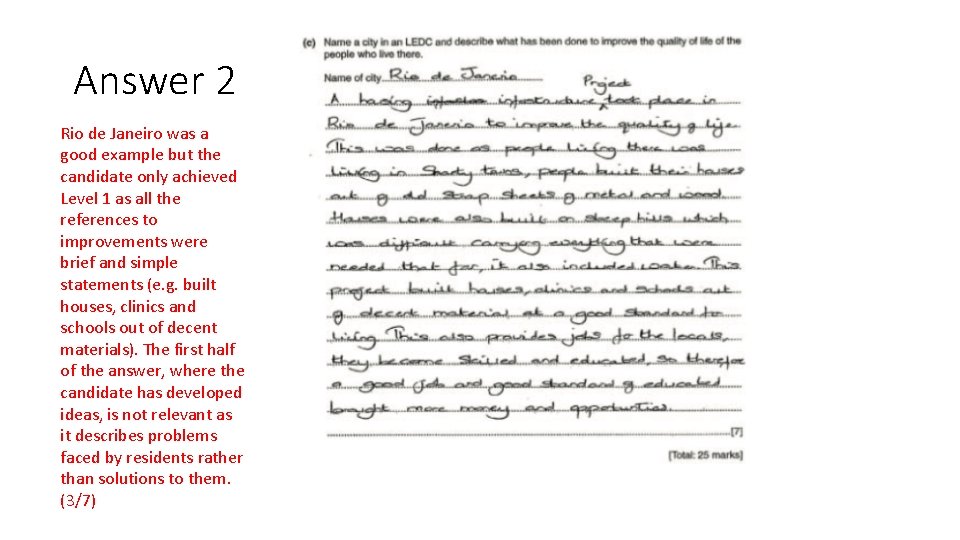 Answer 2
Rio de Janeiro was a
good example but the
candidate only achieved
Level 1 as all the
references to
improvements were
brief and simple
statements (e.g. built
houses, clinics and
schools out of decent
materials). The first half
of the answer, where the
candidate has developed
ideas, is not relevant as
it describes problems
faced by residents rather
than solutions to them.
(3/7)
(c) Name a city in an LEDC and describe what has been done to improve the quality of life of the
people who live there.
Name of city Rio de Janeria
Project
A infrastructure took place in
Rio de Janeria to improve the quality of life
This was done as people living there was
living in Shanty towns, people built their houses
out of old scrap sheets of metal and wood
Houses were also built on steep hills which
was difficult carrying everything that were
needed that far, it also included water This
project built houses, clinics and schools out
of decent material at a good standard for
living This also provides jobs for the locals,
they become skilled and educated, so therefore
a good job and good standard of educated
brought more money and opportunties.
[7]
[Total: 25 marks]